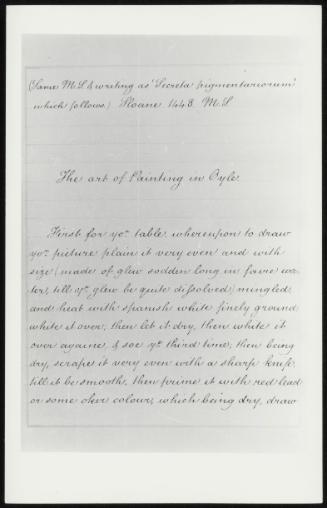 (Same M.S & writing as 'Secreta pigmentariorum'
which follows.) Sloane 1448. M.S
The art of Painting in Oyle.
First for yor. table, whereupon to draw
yor. picture plain it very even and with
size (made of glew sodden long in faire wa-
ter, till ye. glew be quite dissolved) mingled
and heat with spanish white finely ground
white it over; then let it dry, then white it
over againe, & soe ye third time; then being
dry, scrape it very even with a sharp knife
till it be smooth, then prime it with red lead
or some oker colour, which being dry, draw